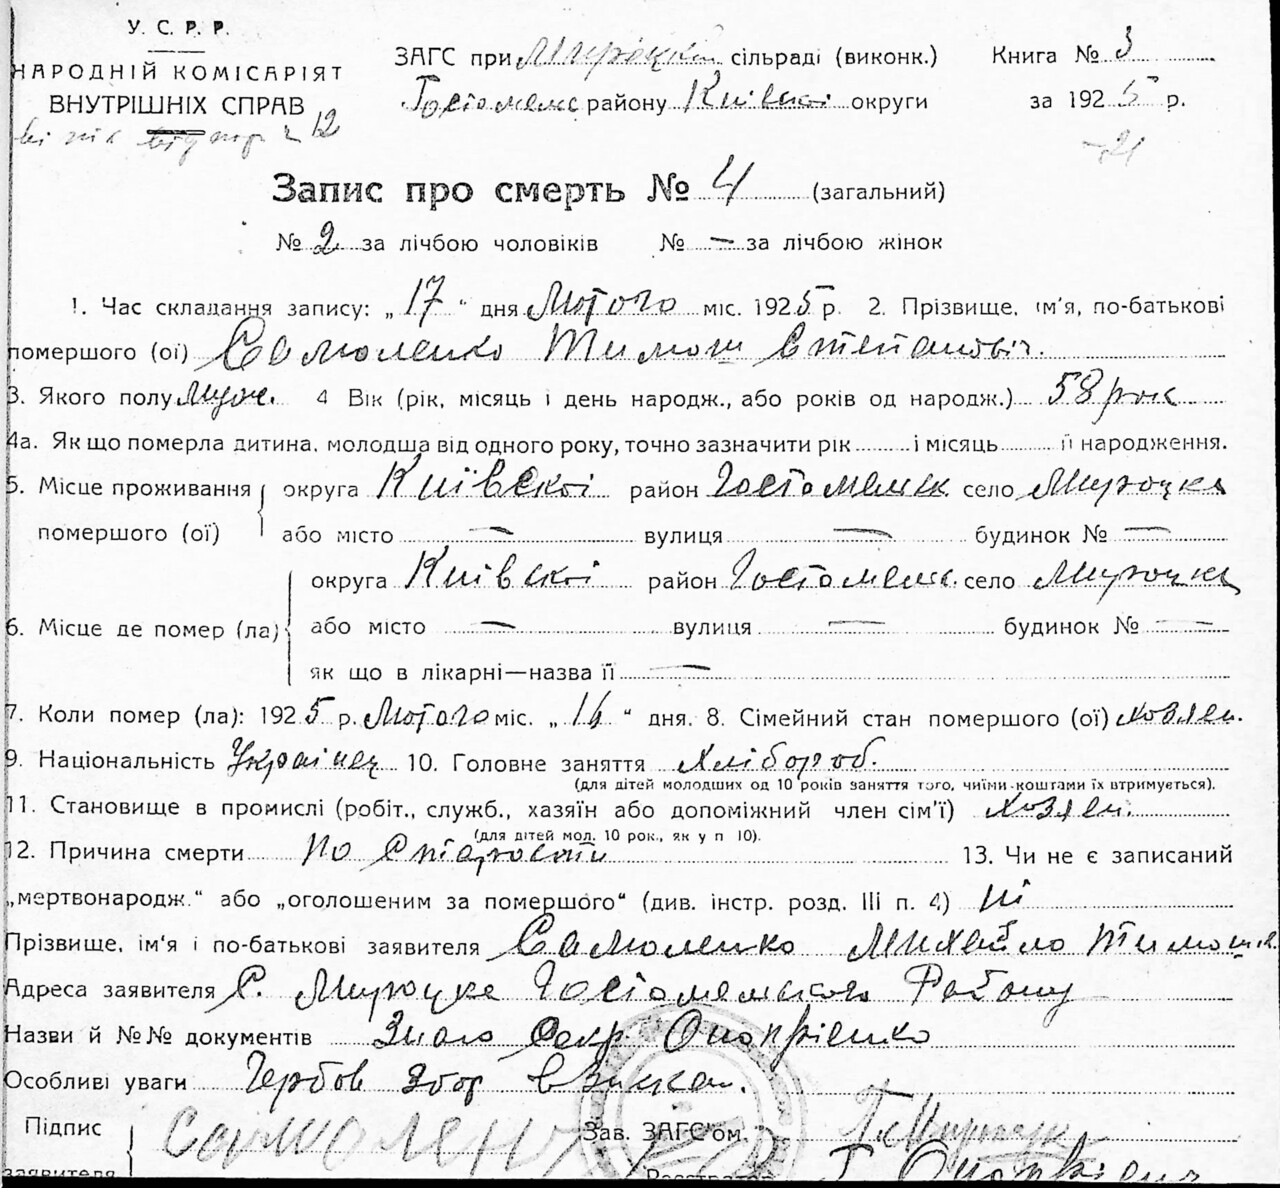 У. С. Р. Р.
НАРОДНІЙ КОМІСАРІЯТ
ВНУТРІШНІХ СПРАВ
12
ЗАГС при Мироцкій сільраді (виконк.) Книга № 3
Гостомельс району Київскої округи за 1925 р.
Запис про смерть № 4 (загальний)
№ 2 за лічбою чоловіків № — за лічбою жінок
1. Час складання запису: „17“ дня Лютого міс. 1925 р. 2. Прізвище, ім'я, по-батькові
помершого (ої) Самоленко Тимош Степанович.
3. Якого полу Муж. 4 Вік (рік, місяць і день народж., або років од народж.) 58 рок
4а. Як що померла дитина, молодша від одного року, точно зазначити рік і місяць її народження.
5. Місце проживання помершого (ої) округа Київскої район Гостомельск село Мироцке
або місто — вулиця — будинок № —
6. Місце де помер (ла) округа Київскої район Гостомельс. село Мироцке
або місто — вулиця — будинок № —
як що в лікарні—назва її —
7. Коли помер (ла): 1925 р. Лютого міс. „16“ дня. 8. Сімейний стан помершого (ої) хозяен.
9. Національність Українец 10. Головне заняття Хлібороб.
(для дітей молодших од 10 років заняття того, чиїми-коштами їх втримується).
11. Становище в промислі (робіт., служб., хазяїн або допоміжний член сім'ї) хозяен.
(для дітей мол. 10 рок., як у п 10).
12. Причина смерти По старости 13. Чи не є записаний
„мертвонародж.“ або „оголошеним за помершого“ (див. інстр. розд. III п. 4) ні
Прізвище, ім'я і по-батькові заявителя Самоленко Михайло Тимош.
Адреса заявителя С. Мироцке Гостомельского Району
Назви й №№ документів Знаю Секр Оноприенко
Особливі уваги Гербов збор взискан.
Підпис заявителя Зав. ЗАГС'ом
Реєстратор